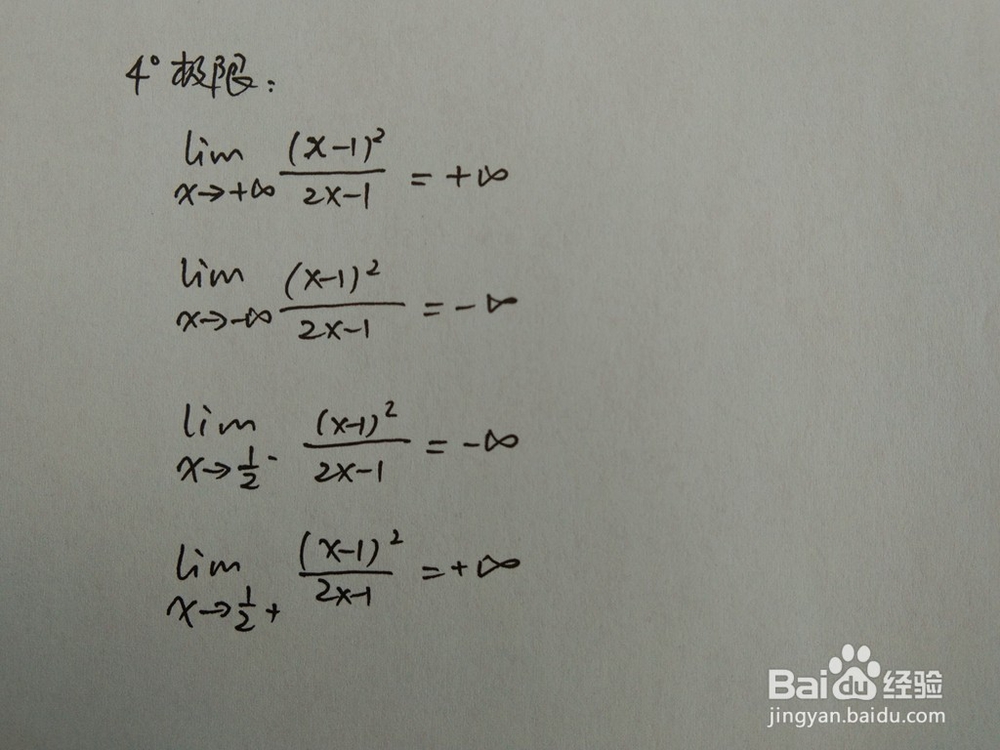 4° 极限:
lim x→+∞ (x-1)² / 2x-1 = +∞
lim x→-∞ (x-1)² / 2x-1 = -∞
lim x→1/2- (x-1)² / 2x-1 = -∞
lim x→1/2+ (x-1)² / 2x-1 = +∞
Baidu 经验
jingyan.baidu.com